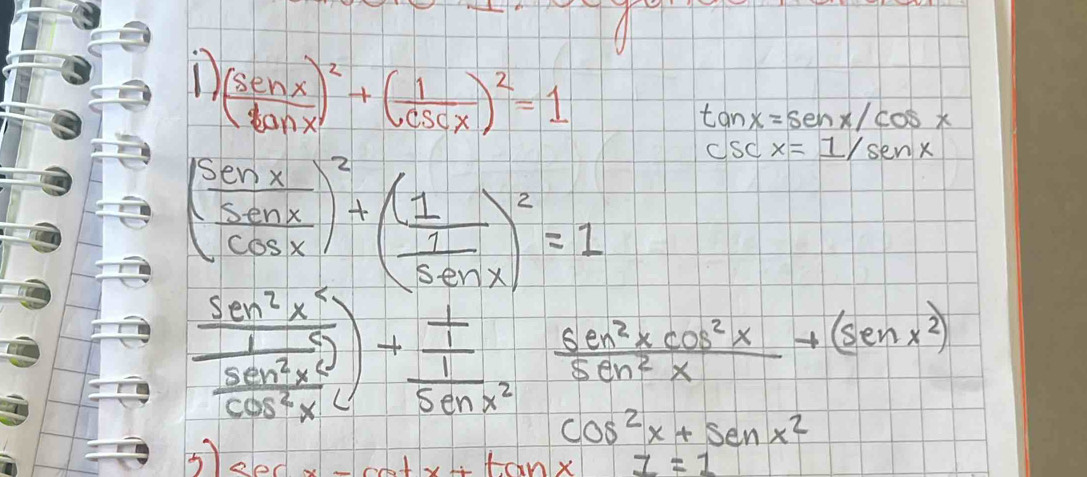 i) (senx/tanx)² + (1/cscx)² = 1
tanx = senx/cos x
csc x = 1/senx
(senx/(senx/cosx))² + (1/(1/senx))² = 1
(sen²x/1)/(sen²x/cos²x) + (1/1)/(1/senx²) sen²x cos²x/sen²x + (senx²)
cos²x + senx²
1 = 1
sec x - cotx + tanx